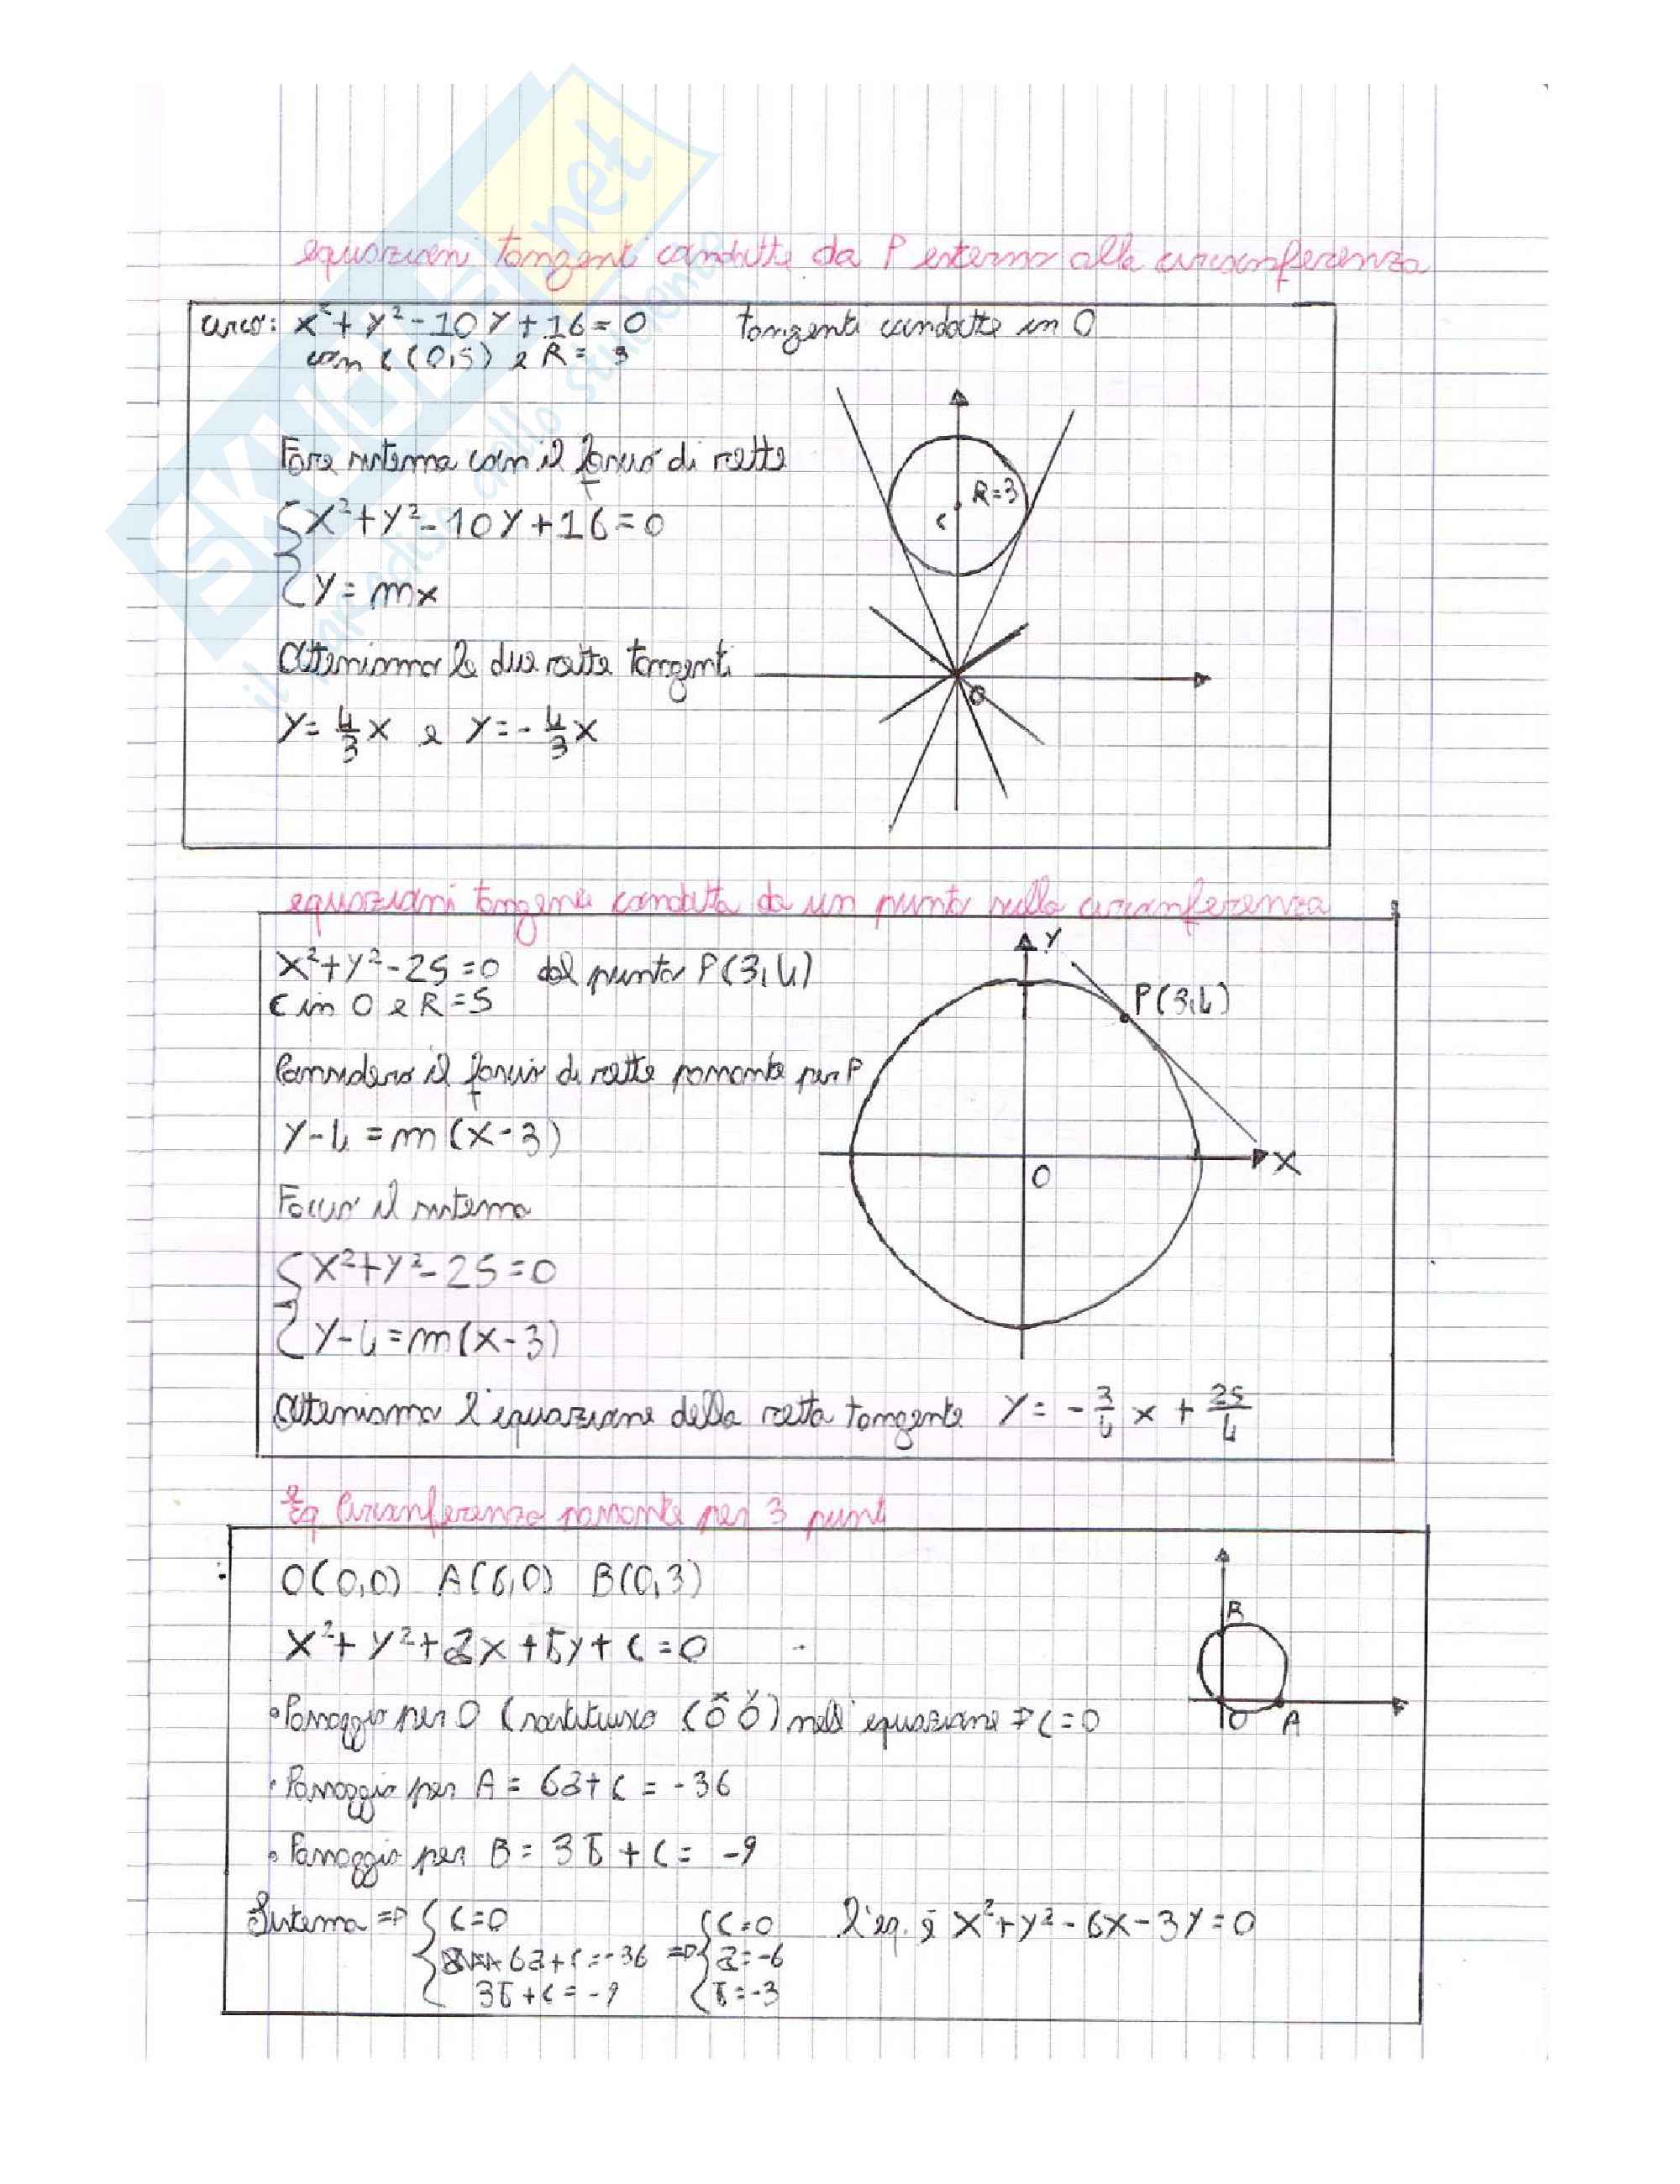 SKUOLA.net
il paradiso dello studente
equazioni tangenti condotte da P esterno alla circonferenza
circo: x²+y²-10y+16=0 tangenti condotte in O
con C(0,5) e R= 3
Fare sistema con il fascio di rette
{x²+y²-10y+16=0
{y=mx
Otteniamo le due rette tangenti
y=4/3x e y=-4/3x
R=3
C
O
equazioni tangente condotta da un punto sulla circonferenza
x²+y²-25=0 dal punto P(3,4)
C in O e R=5
Considero il fascio di rette passante per P
y-4=m(x-3)
Faccio il sistema
{x²+y²-25=0
{y-4=m(x-3)
Otteniamo l'equazione della retta tangente y=-3/4x+25/4
Y
P(3,4)
O
X
Eq Circonferenza passante per 3 punti
O(0,0) A(6,0) B(0,3)
x²+y²+ax+by+c=0
•Passaggio per O (sostituisco (0 0) nell'equazione ⇒ c=0
x y
•Passaggio per A = 6a+c=-36
•Passaggio per B = 3b+c=-9
Sistema ⇒ {c=0 {c=0 L'eq. è x²+y²-6x-3y=0
6a+c=-36 ⇒ {a=-6
3b+c=-9 {b=-3
B
O A